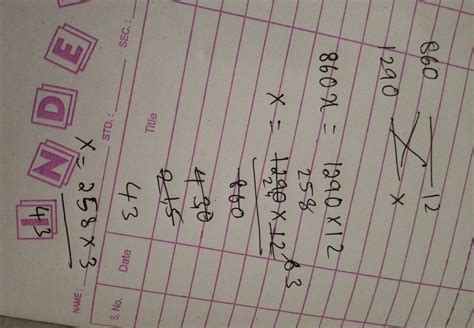 I N D E
NAME:
STD.:
SEC.:
S. No.
Date
Title
860 12
1290 x
860x = 1290 x 12
258
x = 1290 x 12 6 3
860
430
215
43
x = 258 x 3
43